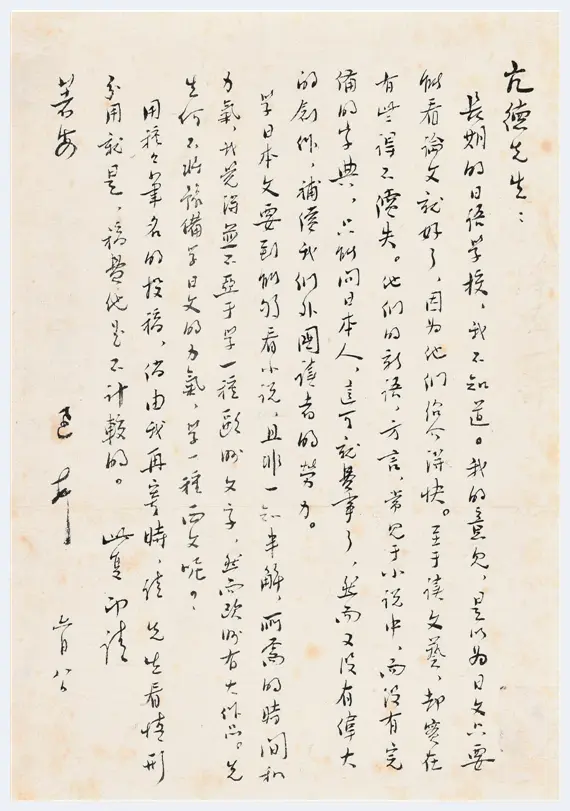 亢德先生：
長期的日语学校，我不知道。我的意见，是以为日文只要
能看論文就好了，因为他们绍介得快。至于读文藝，却實在
有些得不償失。他们的新语，方言，常见于小说中，而没有完
備的字典，只能问日本人，這可就費事了，然而又没有偉大
的創作，補償我们外國讀者的勞力。
学日本文要到能够看小说，且非一知半解，所需的時間和
力氣，我覺得並不亞于学一種歐洲文字，然而欧洲有大作品。先
生何不将豫備学日文的力氣，学一種西文呢？
用種々筆名的投稿，倘由我再寄時，请 先生看情形
分用就是，稿費他是不计較的。 此复即请
著安
迅 六月八日